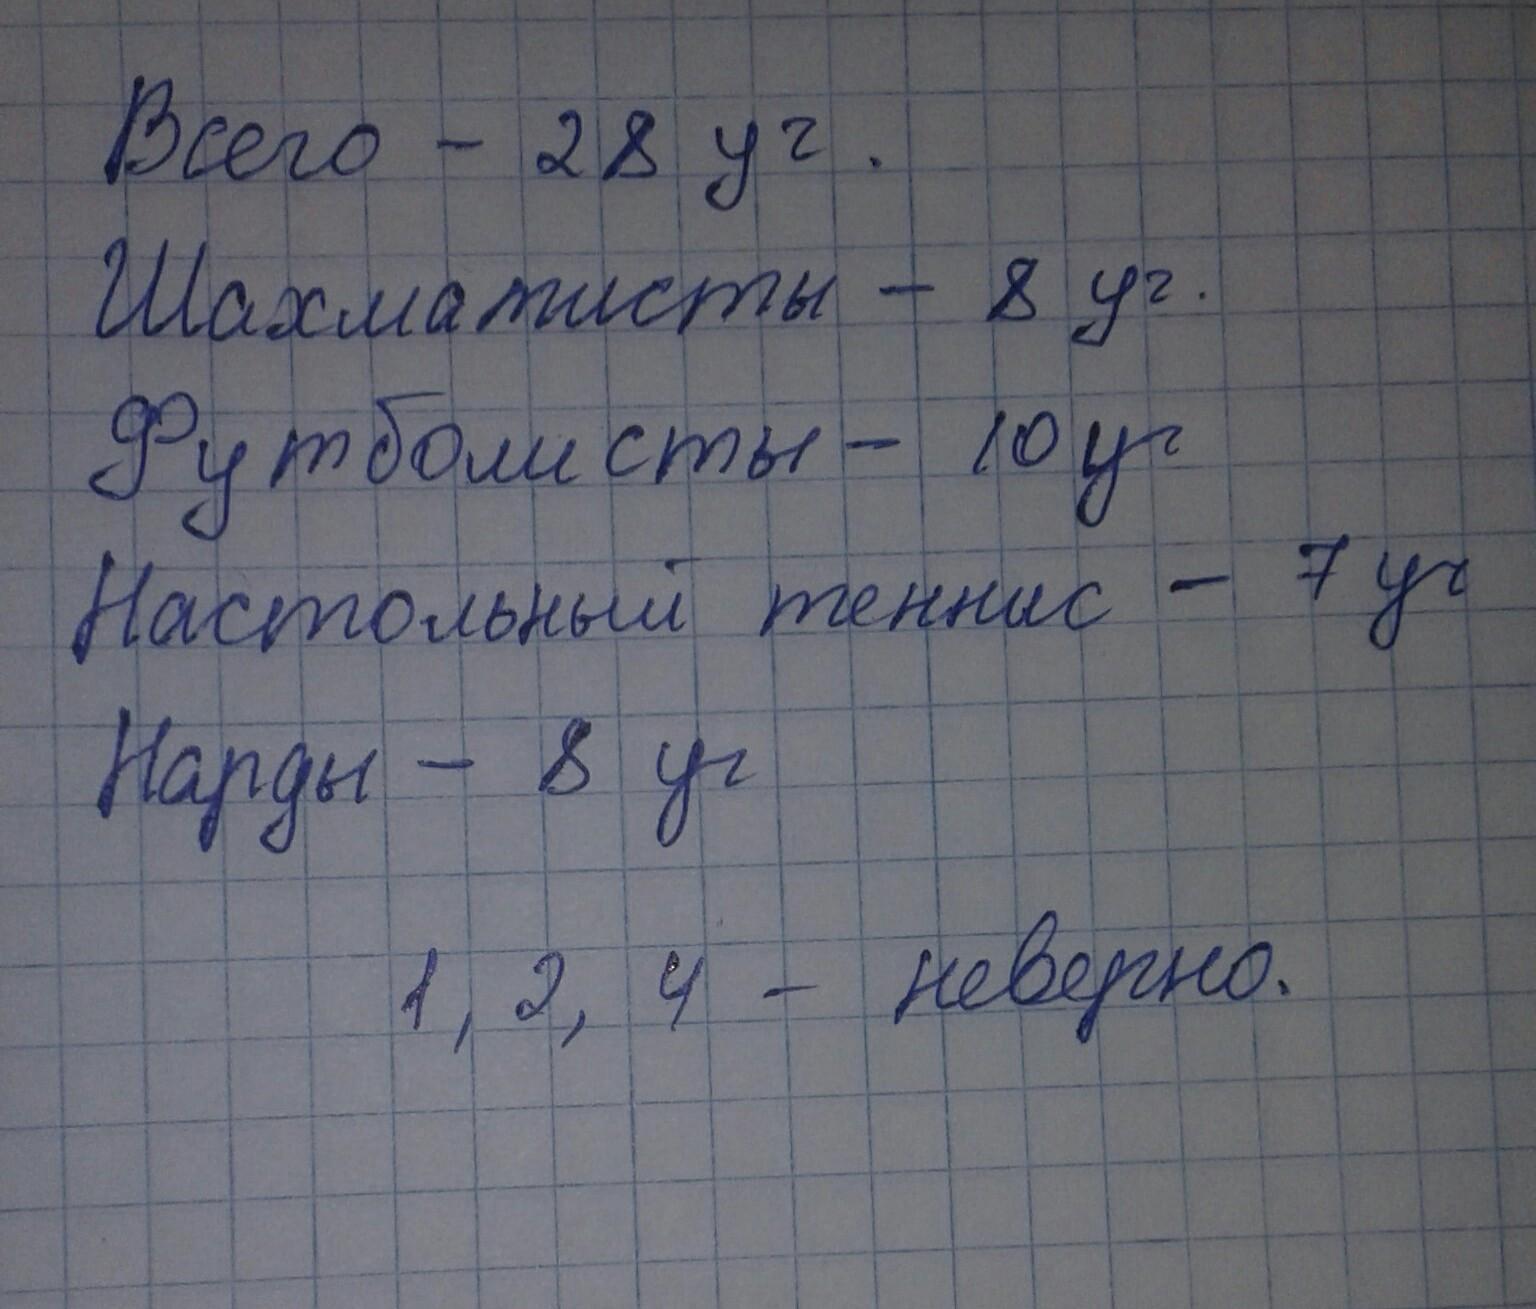 Всего - 28 уч.
Шахматисты - 8 уч.
Футболисты - 10 уч
Настольный теннис - 7 уч
Нарды - 8 уч
1, 2, 4 - неверно.